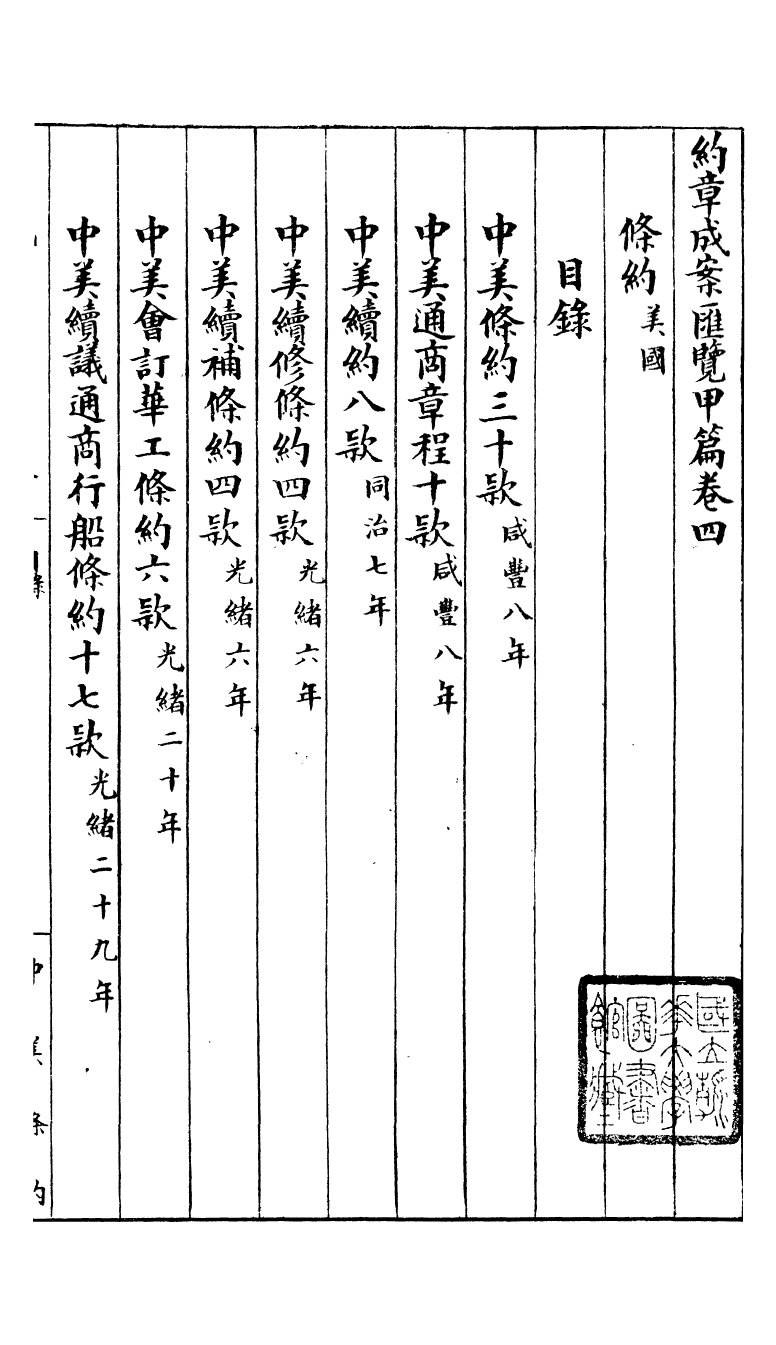 約章成案匯覽甲篇卷四
條約美國
目錄
中美條約三十款咸豐八年
中美通商章程十款咸豐八年
中美續約八款同治七年
中美續修條約四款光緒六年
中美續補條約四款光緒六年
中美會訂華工條約六款光緒二十年
中美續議通商行船條約十七款光緒二十九年
中美條約
國立清華大學圖書館藏